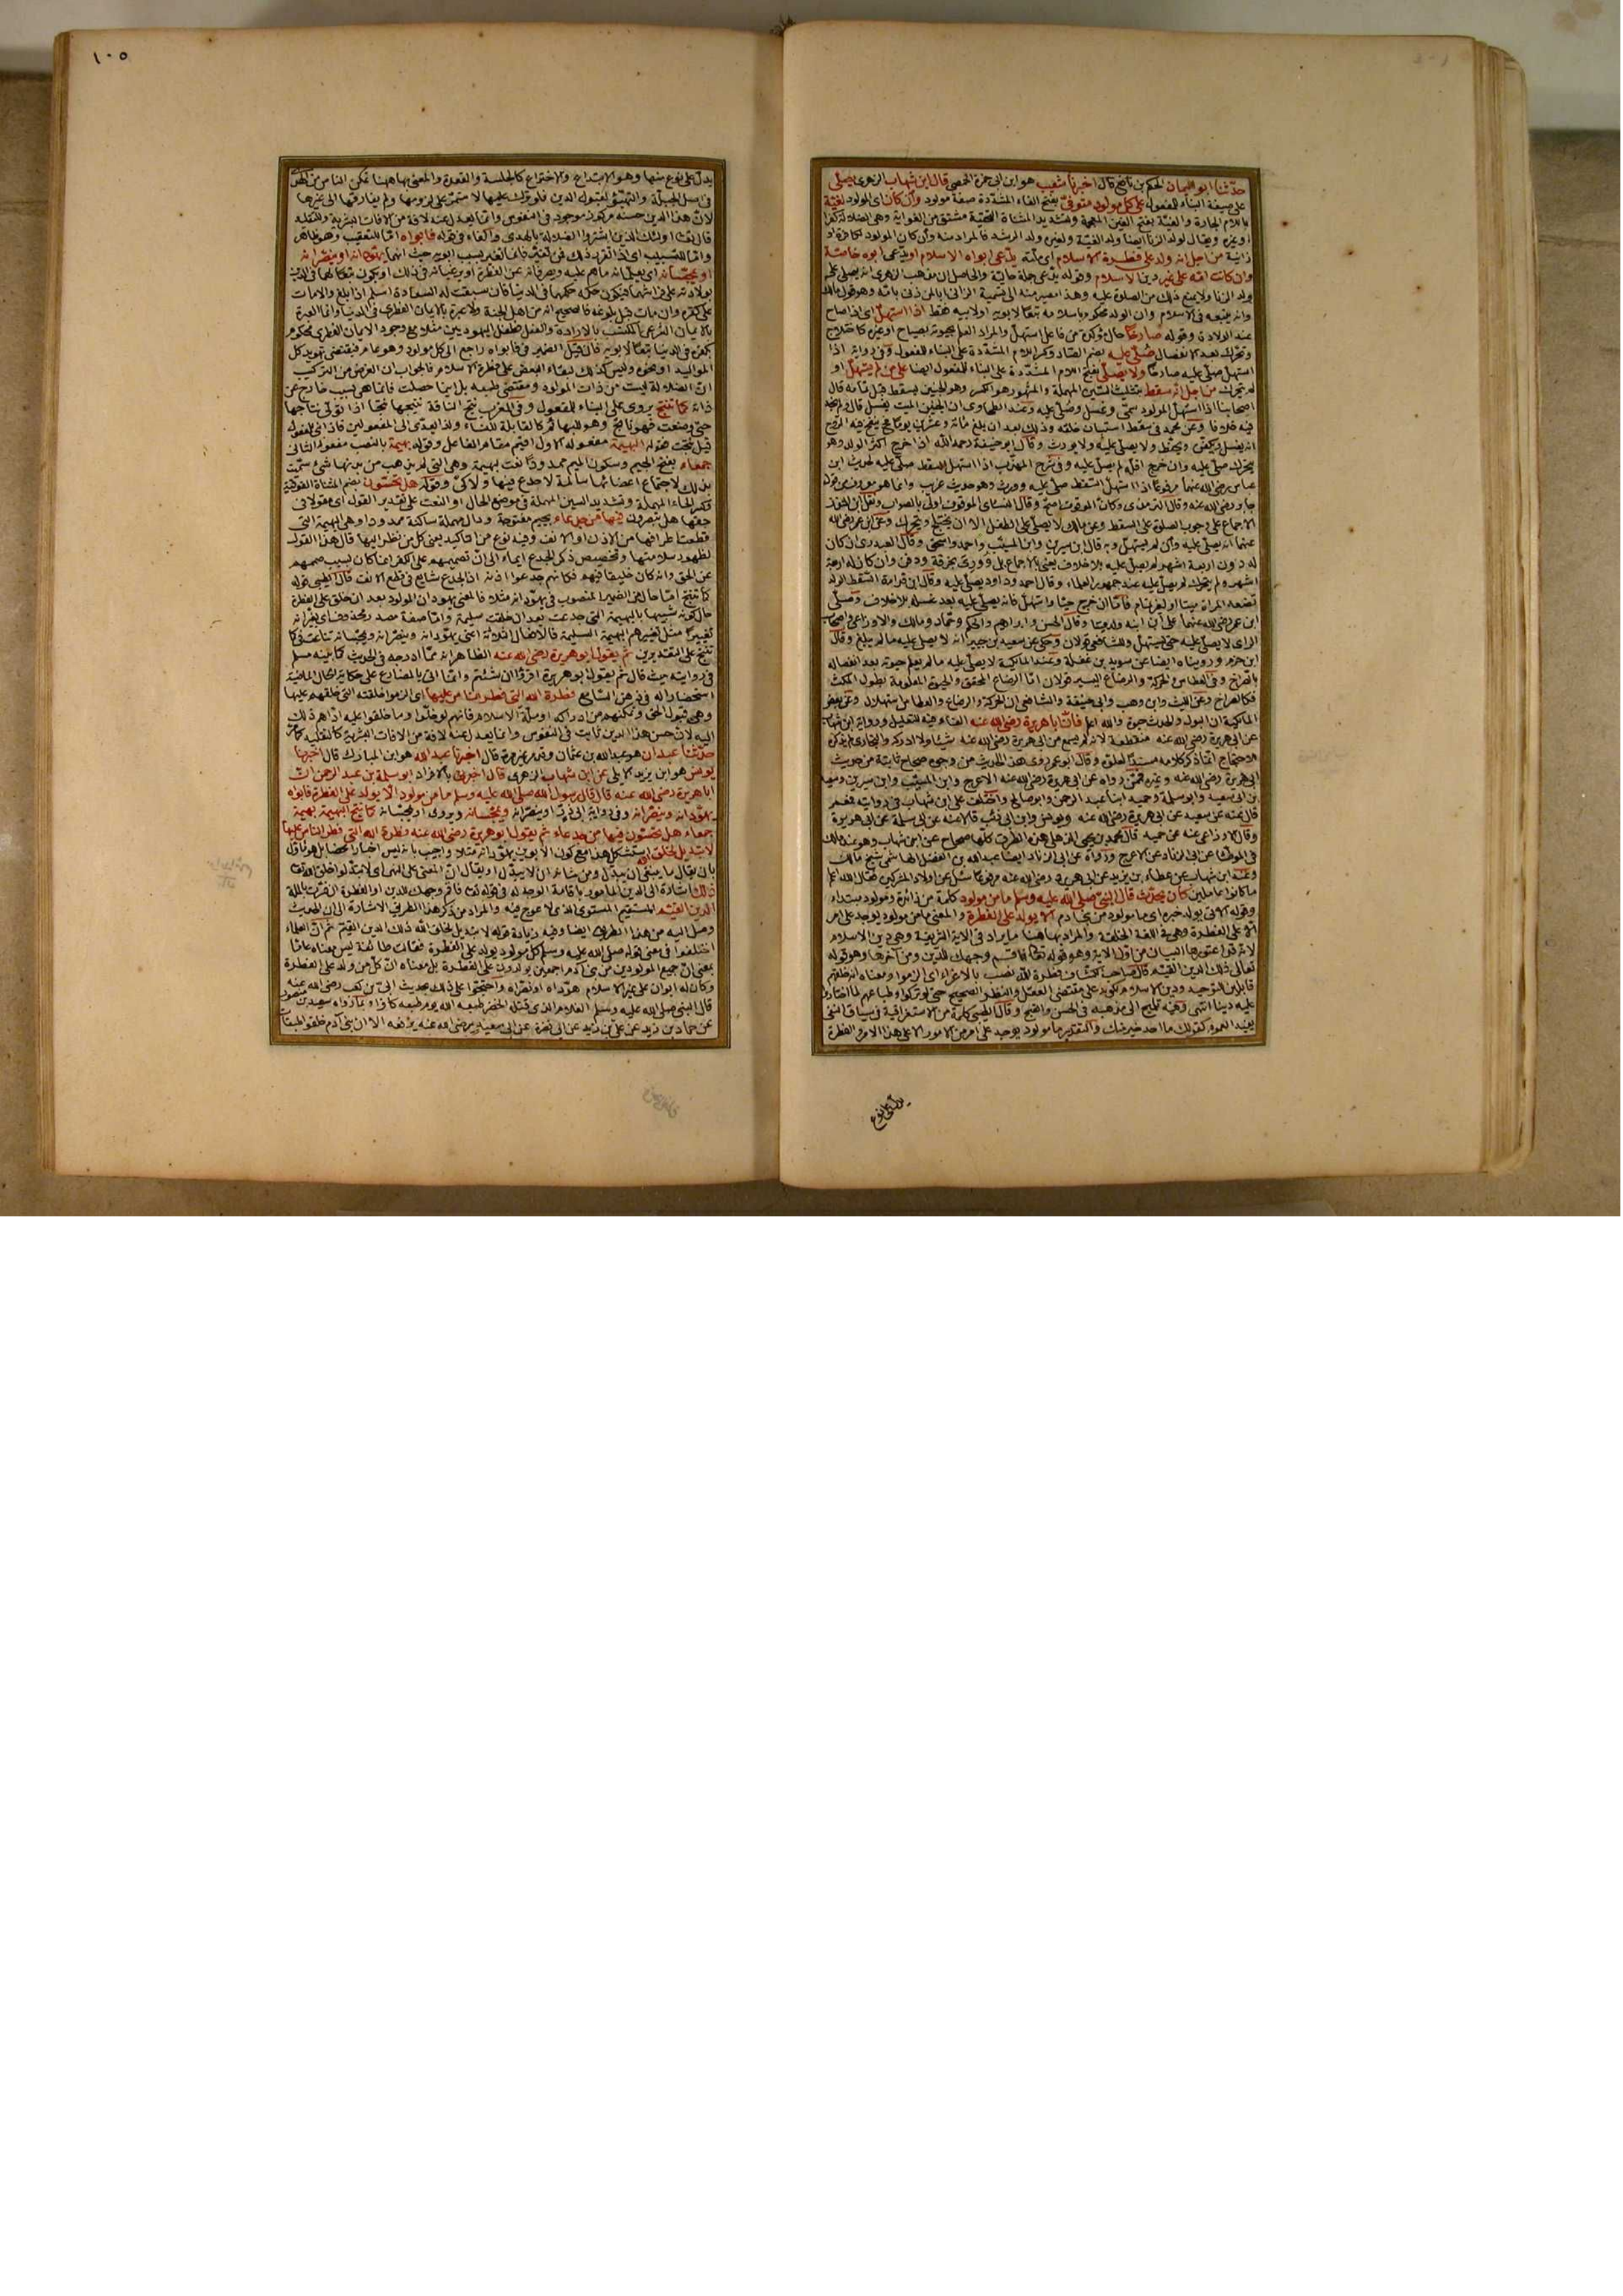 حدثنا ابو اليمان الحكم بن نافع قال اخبرنا شعيب هو ابن ابى حمزة الحمصى قال ابن شهاب الزهرى يصلى
على صيغة البناء للمفعول على كل مولود متوفى بفتح الفاء المشددة صفة مولود وان كان اى المولود لغية
باللام الجارة والغية بفتح الغين المعجمة وتشديد المثناة التحتية مشتق من الغواية وهى الضلالة كفرا
او غيره ويقال لولد الزنا ايضا ولد الغية ولغيره ولد الرشد فالمراد منه وان كان المولود لكافرة او
زانية من اجل انه ولد على فطرة الاسلام اى ملته يدعى ابواه الاسلام او يدعى ابوه خاصة
وان كانت امه على غير دين الاسلام وقوله يدعى جملة حالية والحاصل ان مذهب الزهرى انه يصلى على
ولد الزنا ولا يمنع ذلك من الصلوة عليه وهذا مصير منه الى تسمية الزانى ابا لمن زنى بامه وهو قول مالك
وانه يتبعه فى الاسلام وان الولد محكوم باسلامه تبعا لابويه او لابيه فقط اذا استهل اى اذا صاح
عند الولادة وقوله صارخا حال مؤكدة من فاعل استهل والمراد العلم بحيوته بصياح او غيره كاختلاج
وتحرك بعد الانفصال صلى عليه بضم الصاد وكسر اللام المشددة على البناء للمفعول وفى رواية اذا
استهل صلى عليه صارخا ولا يصلى بفتح اللام المشددة على البناء للمفعول ايضا على من لم يستهل او
لم يتحرك من اجل انه سقط بتثليث السين المهملة والمشهور هو الكسر وهو الجنين يسقط قبل تمامه قال
اصحابنا اذا استهل المولود سمى وغسل وصلى عليه وعند الطحاوى ان الجنين الميت يغسل
عباس رضى الله عنهما مرفوعا اذا استهل السقط صلى عليه وورث وهو حديث غريب
جابر رضى الله عنه وقال الترمذى وكان الموقوف اصح وقال النسائى الموقوف اولى بالصواب ونقل ابن المنذر
الاجماع على وجوب الصلوة على السقط وعن مالك لا يصلى على الطفل الا ان يختلج ويتحرك وعن ابن عمر رضى الله
عنهما انه يصلى عليه وان لم يستهل وبه قال ابن سيرين وابن المسيب واحمد واسحق وقال العبدرى ان كان
له دون اربعة اشهر لم يصل عليه بلا خلاف يعنى بالاجماع بل وورى بخرقة ودفن وان كان له اربعة
اشهر ولم يتحرك لم يصل عليه عند جمهور العلماء وقال احمد وداود يصلى عليه وقال ابن قدامة السقط الولد
تضعه المراة ميتا او لغير تمام فاما ان خرج حيا واستهل فانه يصلى عليه بعد غسله بلا خلاف وصلى
ابن عمر رضى الله عنهما على ابن ابنه ولد ميتا وقال الحسن وابراهيم والحكم وحماد ومالك والاوزاعى واصحاب
الراى لا يصلى عليه حتى يستهل وللشافعى قولان وحكى عن سعيد بن جبير انه لا يصلى عليه ما لم يبلغ وقال
ابن حزم وروينا ايضا عن سويد بن غفلة وعند المالكية لا يصلى عليه ما لم يعلم حيوته بعد انفصاله
المالكية ان البول والحدث حيوة والله اعلم فان ابا هريرة رضى الله عنه الفاء فيه للتعليل ورواية ابن شهاب
عن ابى هريرة رضى الله عنه منقطعة لانه لم يسمع من ابى هريرة رضى الله عنه شيئا ولا ادركه والبخارى لم يذكره
ابى هريرة رضى الله عنه وغيره فممن رواه عن ابى هريرة رضى الله عنه الاعرج وابن المسيب وابن سيرين وسعيد
بن ابى سعيد وابو سلمة وحميد ابنا عبد الرحمن وابو صالح واختلف على ابن شهاب فى روايته فمعمر
قال عنه عن سعيد عن ابى هريرة رضى الله عنه ويونس وابن ابى ذئب قالا عنه عن ابى سلمة عن ابى هريرة
وقال الاوزاعى عنه عن حميد قال محمد بن يحيى الذهلى هذه الطرق كلها صحاح عن ابن شهاب وهو عند مالك
فى الموطا عن ابى الزناد عن الاعرج ورواه عن ابى الزناد ايضا عبد الله بن الفضل الهاشمى شيخ مالك
وعند ابن شهاب عن عطاء بن يزيد عن ابى هريرة رضى الله عنه مرفوعا سئل عن اولاد المشركين فقال الله اعلم
ما كانوا عاملين كان يحدث قال النبى صلى الله عليه وسلم ما من مولود كلمة من زائدة ومولود مبتداء
وقوله الا يولد خبره اى ما مولود من بنى ادم الا يولد على الفطرة والمعنى ما من مولود يوجد على امر
الا على الفطرة وهى فى اللغة الخلقة والمراد بها هنا ما يراد فى الاية الشريفة وهى دين الاسلام
تعالى ذلك الدين القيم قال صاحب الكشاف فطرة الله نصب بالاغراء اى الزموا ومعناه انه خلقهم
قابلين للتوحيد ودين الاسلام لكونه على مقتضى العقل والنظر الصحيح حتى لو تركوا وطباعهم لما اختاروا
عليه دينا انتهى وفيه تلميح الى مذهبه فى الحسن والقبح وقال الطيبى كلمة من الاستغراقية فى سياق النفى
يفيد العموم كقولك ما احد خير منك والتقدير ما مولود يوجد على امر من الامور الا على هذا الامر والفطرة
يدل على نوع
١٠٥
يدل على نوع منها وهو الابتداع والاختراع كالجلسة والقعدة والمعنى بها ههنا تمكن الناس من الهدى
فى اصل الجبلة والتهيؤ لقبول الدين فلو ترك عليها لاستمر على لزومها ولم يفارقها الى غيرها
لان هذا الدين حسنه مركوز موجود فى النفوس وانما يعدل عنه لافة من الافات البشرية والتقليد
قال تعالى اولئك الذين اشتروا الضلالة بالهدى والفاء فى قوله فابواه اما للتعقيب وهو ظاهر
واما للتسبيب اى اذا تقرر ذلك فمن تغير فانما تغير بسبب ابويه حيث انهما يهودانه او ينصرانه
او يمجسانه اى يعلمانه ما هم عليه ويصرفانه عن الفطرة او يرغبانه فى ذلك او يكون تبعا لهما فى الدين
بولادته على فراشهما فيكون حكمه حكمهما فى الدنيا فان سبقت له السعادة اسلم اذا بلغ والا مات
على كفره وان مات قبل بلوغه فالصحيح انه من اهل الجنة ولا عبرة بالايمان الفطرى فى الدنيا وانما العبرة
بالايمان الشرعى المكتسب بالارادة والفعل فطفل اليهوديين مثلا مع وجود الايمان الفطرى محكوم
بكفره فى الدنيا تبعا لابويه فان قيل الضمير فى فابواه راجع الى كل مولود وهو عام فيقتضى تهويد كل
المواليد او نحوه وليس كذلك لبقاء البعض على فطرة الاسلام فالجواب ان الغرض من التركيب
ان الضلالة ليست من ذات المولود ومقتضى طبعه بل اينما حصلت فانما هى بسبب خارج عن
ذاته كما تنتج يروى على البناء للمفعول وفى المغرب نتج الناقة ينتجها نتجا اذا تولى نتاجها
حتى وضعت فهو ناتج وهو للبهائم كالقابلة للنساء
قيل نتجت فقوله البهيمة مفعوله الاول اقيم مقام الفاعل وقوله بهيمة بالنصب مفعوله الثانى
جمعاء بفتح الجيم وسكون الميم ممدودا نعت بهيمة وهى التى لم يذهب من بدنها شئ سميت
بذلك لاجتماع اعضائها سالمة لا جدع فيها ولا كى وقوله هل تحسون بضم المثناة الفوقية
وكسر الحاء المهملة وتشديد السين المهملة فى موضع الحال او النعت على تقدير القول اى مقولا فى
حقها هل تبصرون فيها من جدعاء بجيم مفتوحة ودال مهملة ساكنة ممدودا وهى البهيمة التى
قطعت اطرافها من الاذن او الانف وفيه نوع من التاكيد يعنى كل من نظر اليها قال هذا القول
لظهور سلامتها وتخصيص ذكر الجدع ايماء الى ان تصميمهم على الكفر انما كان بسبب صممهم
عن الحق وانه كان خليقا فيهم
كما تنتج اما حال من الضمير المنصوب فى يهودانه مثلا فالمعنى يهودان المولود بعد ان خلق على الفطرة
حال كونه شبيها بالبهيمة التى جدعت بعد ان خلقت سليمة واما صفة مصدر محذوف اى يغيرانه
تغييرا مثل تغييرهم البهيمة السليمة فالافعال الثلاثة اعنى يهودانه وينصرانه ويمجسانه تنازعت فى كما
تنتج على التقديرين ثم يقول ابو هريرة رضى الله عنه الظاهر انه مما ادرجه فى الحديث كما بينه مسلم
فى روايته حيث قال ثم يقول ابو هريرة اقرؤا ان شئتم وانما اتى بالمضارع على حكاية الحال الماضية
استحضارا له فى ذهن السامع فطرة الله التى فطر الناس عليها اى الزموا خلقته التى خلقهم عليها
وهى قبول الحق وتمكنهم من ادراكه او ملة الاسلام فانهم لو خلوا وما خلقوا عليه اداهم ذلك
اليه لان حسن هذا الدين ثابت فى النفوس وانما يعدل عنه لافة من الافات البشرية كالتقليد كما مر
حدثنا عبدان هو عبد الله بن عثمان وقد مر غير مرة قال اخبرنا عبد الله هو ابن المبارك قال اخبرنا
يونس هو ابن يزيد الايلى عن ابن شهاب الزهرى قال اخبرنى بالافراد ابو سلمة بن عبد الرحمن ان
ابا هريرة رضى الله عنه قال قال رسول الله صلى الله عليه وسلم ما من مولود الا يولد على الفطرة فابواه
يهودانه وينصرانه وفى رواية ابى ذر او ينصرانه ويمجسانه ويروى او يمجسانه كما تنتج البهيمة بهيمة
جمعاء هل تحسون فيها من جدعاء ثم يقول ابو هريرة رضى الله عنه فطرة الله التى فطر الناس عليها
لا تبديل لخلق الله استشكل هذا مع كون الابوين يهودانه مثلا واجيب بانه ليس اخبارا محضا بل هو ماول
بان يقال ما ينبغى ان يبدل ومن شانه ان لا يبدل او يقال ان المعنى على النهى اى لا تبدلوا خلق الله تعالى
ذلك اشارة الى الدين المامور باقامة الوجه له فى قوله تعالى فاقم وجهك للدين او الفطرة ان فسرت بالملة
الدين القيم المستقيم المستوى الذى لا عوج فيه والمراد من ذكر هذا الطريق الاشارة الى ان الحديث
وصل اليه من هذا الطريق ايضا وفيه زيادة قوله لا تبديل لخلق الله ذلك الدين القيم ثم ان العلماء
اختلفوا فى معنى قوله صلى الله عليه وسلم كل مولود يولد على الفطرة فقالت طائفة ليس معناه عاما
بمعنى ان جميع المولودين من بنى آدم اجمعين يولدون على الفطرة بل معناه ان كل من ولد على الفطرة
وكان له ابوان على غير الاسلام هوداه او نصراه واحتجوا على ذلك بحديث ابى بن كعب رضى الله عنه
قال النبى صلى الله عليه وسلم الغلام الذى قتله الخضر طبعه الله يوم طبعه كافرا وبما رواه سعيد بن منصور
عن حماد بن زيد عن على بن زيد عن ابى نضرة عن ابى سعيد رضى الله عنه يرفعه الا ان بنى آدم خلقوا طبقات